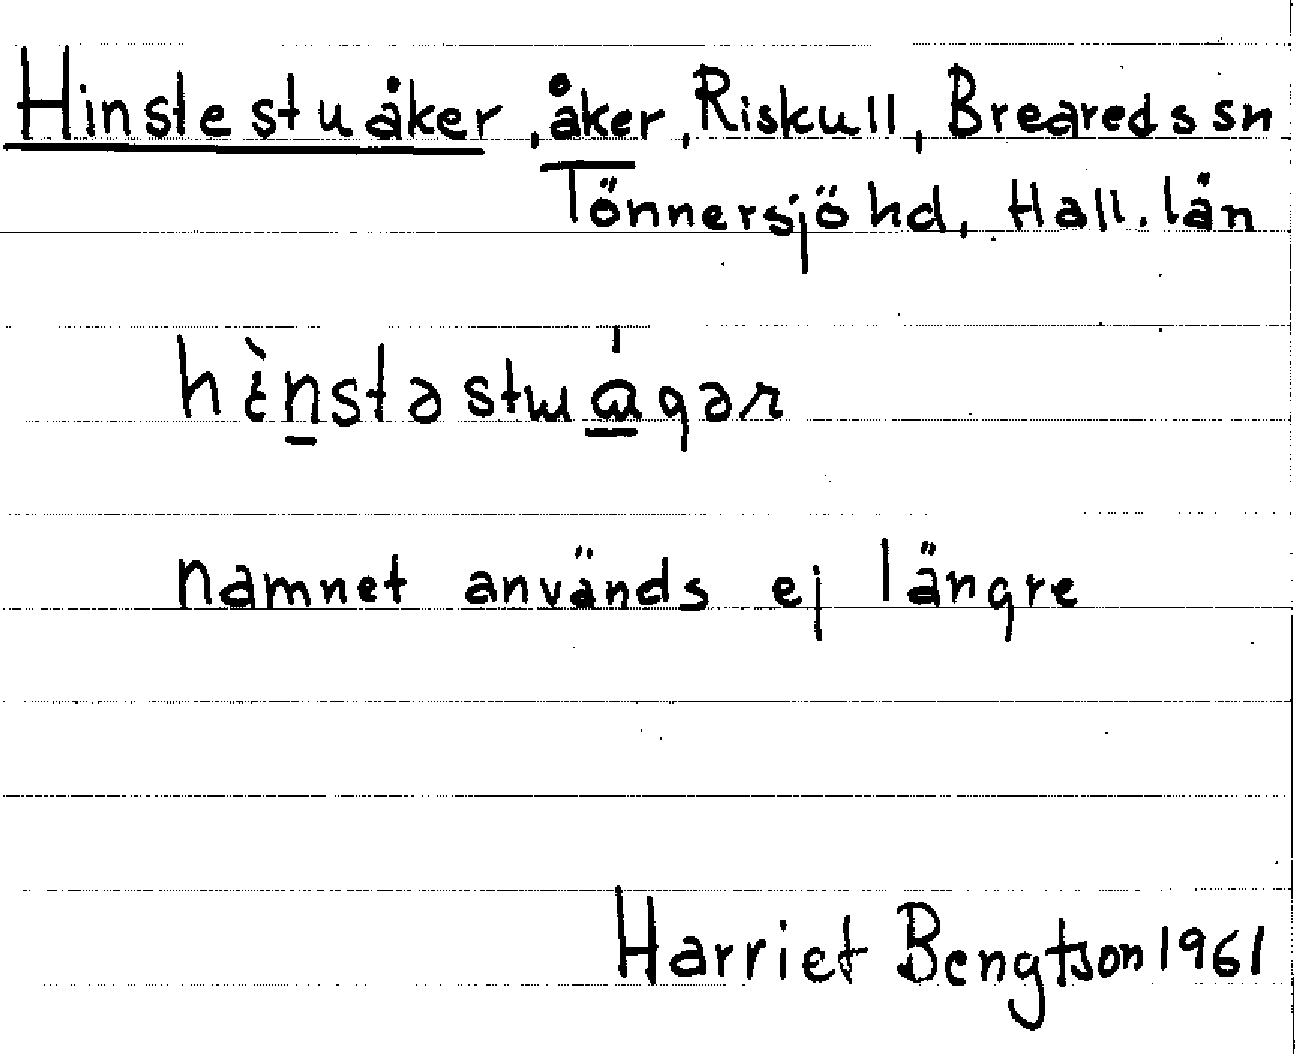 Hinstestuåker, åker, Riskull, Breareds sn
Tönnersjö hd, Hall. län
hìnstəstuágər
namnet används ej längre
Harriet Bengtson 1961